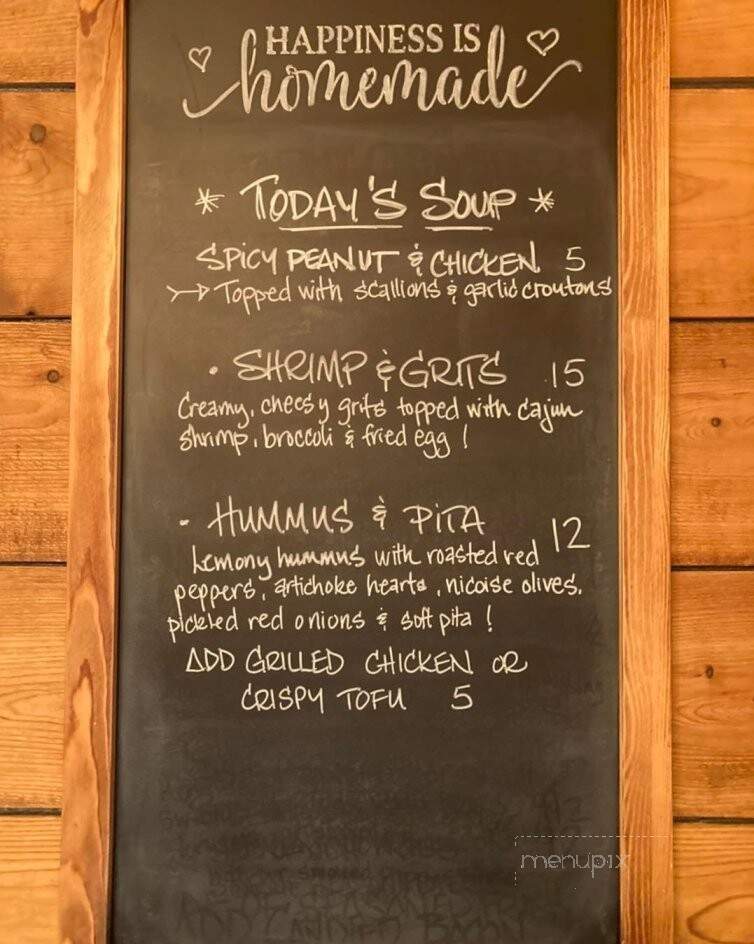 HAPPINESS IS
homemade
* TODAY'S SOUP *
SPICY PEANUT & CHICKEN 5
→ Topped with scallions & garlic croutons
• SHRIMP & GRITS 15
Creamy, cheesy grits topped with cajun
shrimp, broccoli & fried egg !
- HUMMUS & PITA 12
Lemony hummus with roasted red
peppers, artichoke hearts, nicoise olives,
pickled red onions & soft pita !
ADD GRILLED CHICKEN OR
CRISPY TOFU 5
menupix
ADD CANDIED BACON